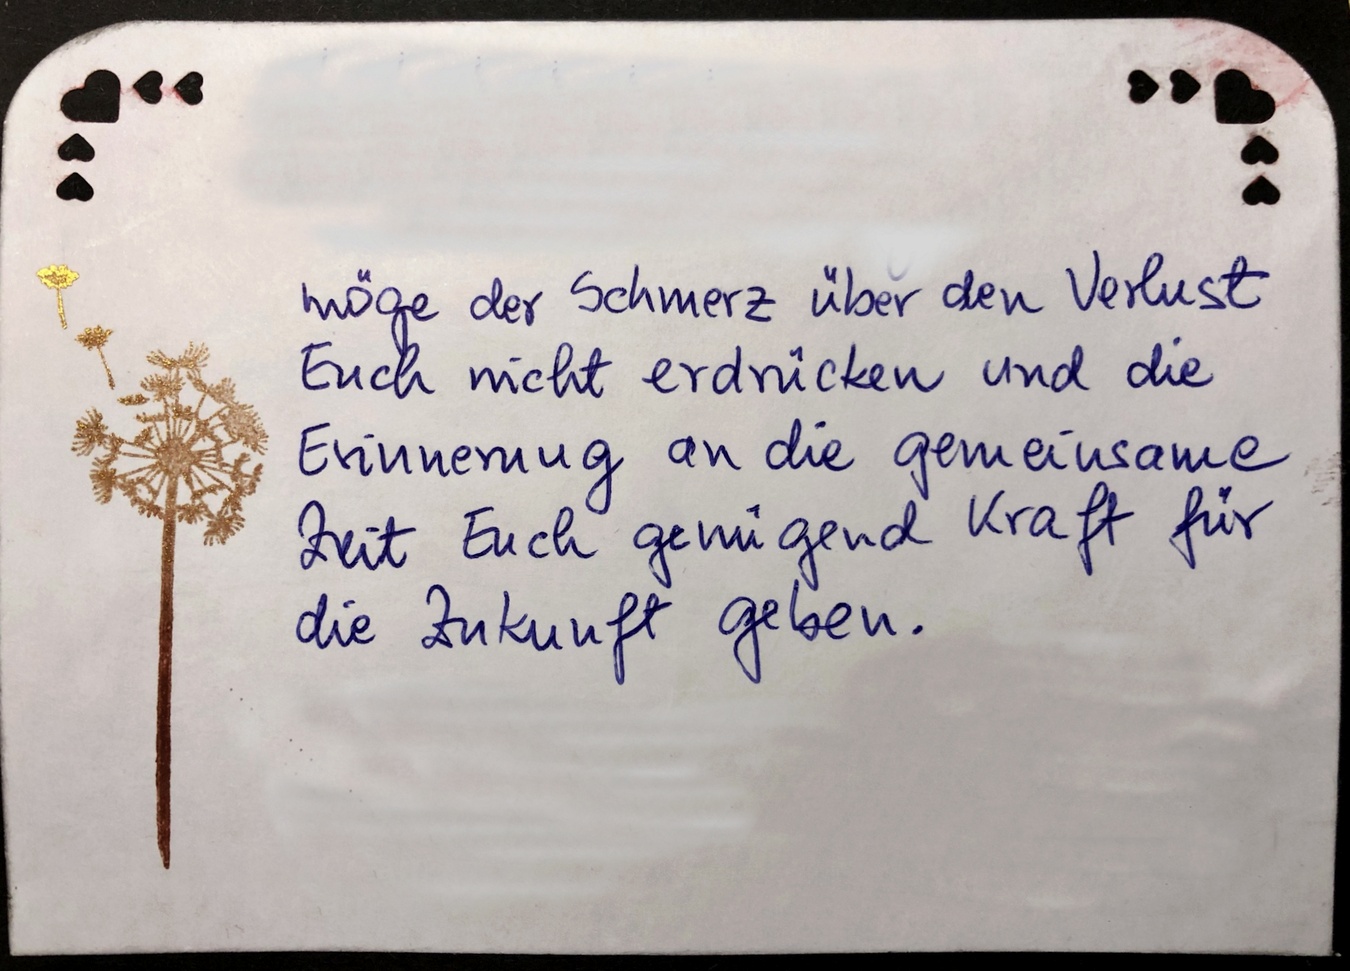 möge der Schmerz über den Verlust
Euch nicht erdrücken und die
Erinnerung an die gemeinsame
Zeit Euch genügend Kraft für
die Zukunft geben.